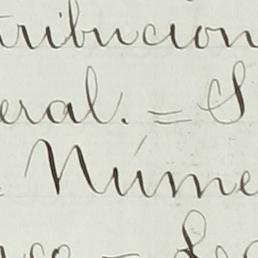 tribucion
eral. = S
Núme